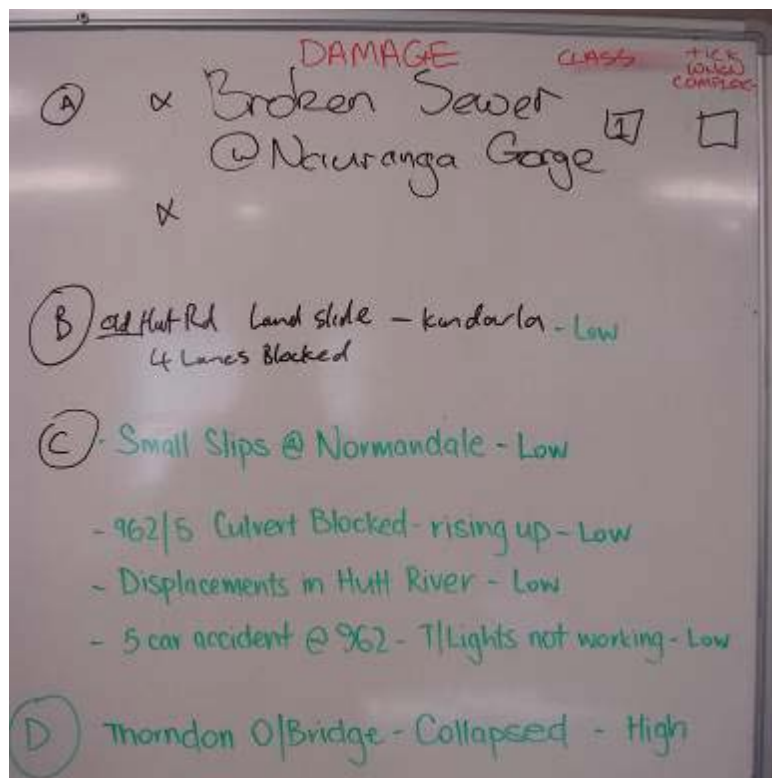 DAMAGE CLASS TICK WHEN
A ∝ Broken Sewer 1
@ Nauranga Gorge
∝
B old Hut Rd Land slide - - Low
4 Lanes Blocked
C - Small Slips @ Normandale - Low
- 962/5 Culvert Blocked - rising up - Low
- Displacements in Hutt River - Low
- 5 car accident @ 962 - T/Lights not working - Low
D Thorndon O/Bridge - Collapsed - High